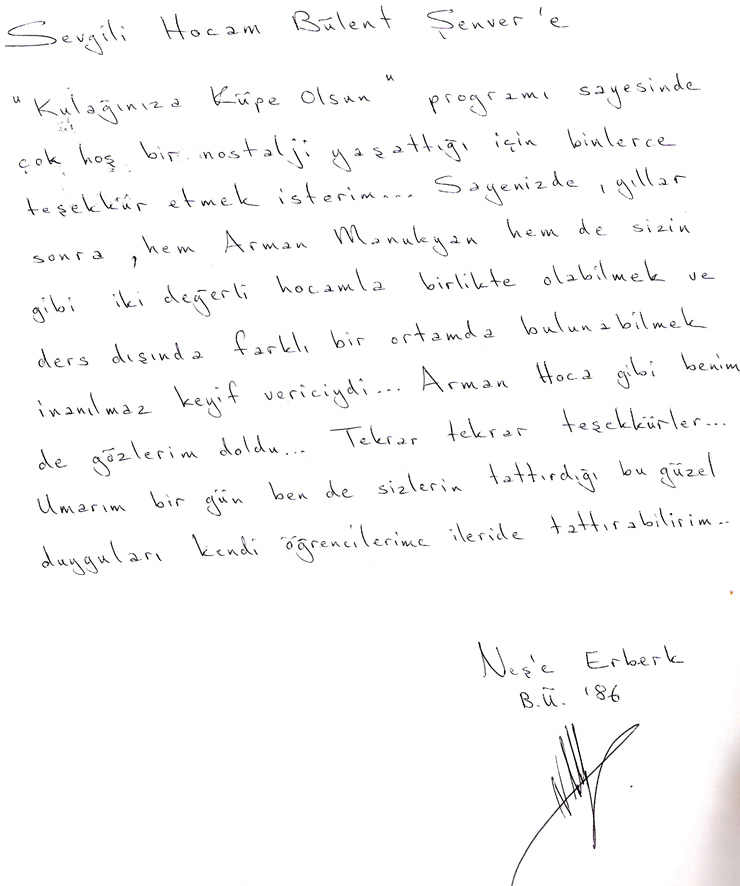 Sevgili Hocam Bülent Şenver'e
"Kulağınıza Küpe Olsun" programı sayesinde
çok hoş bir nostalji yaşattığı için binlerce
teşekkür etmek isterim... Sayenizde, yıllar
sonra, hem Arman Manukyan hem de sizin
gibi iki değerli hocamla birlikte olabilmek ve
ders dışında farklı bir ortamda bulunabilmek
inanılmaz keyif vericiydi... Arman Hoca gibi benim
de gözlerim doldu... Tekrar tekrar teşekkürler...
Umarım bir gün ben de sizlerin tattırdığı bu güzel
duyguları kendi öğrencilerime ileride tattırabilirim..
Neş'e Erberk
B.Ü. '86